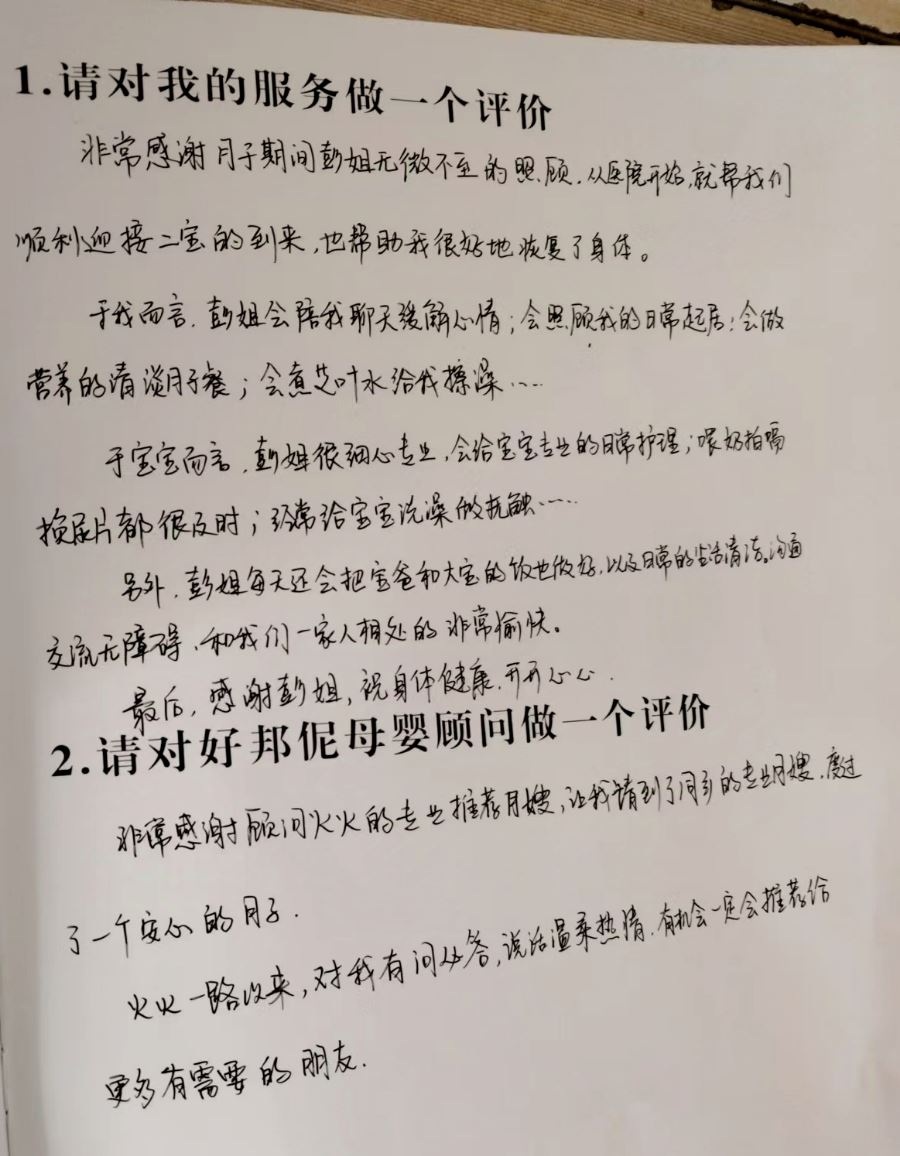 1.请对我的服务做一个评价
非常感谢月子期间彭姐无微不至的照顾，从医院开始，就帮我们
顺利迎接二宝的到来，也帮助我很好地恢复了身体。
于我而言，彭姐会陪我聊天缓解心情；会照顾我的日常起居；会做
营养的清淡月子餐；会煮艾叶水给我擦澡……
于宝宝而言，彭姐很细心专业，会给宝宝专业的日常护理；喂奶拍嗝
换尿片都很及时；经常给宝宝洗澡做抚触……
另外，彭姐每天还会把宝爸和大宝的饭也做好，以及日常的生活清洁。沟通
交流无障碍，和我们一家人相处的非常愉快。
最后，感谢彭姐，祝身体健康，开开心心.
2.请对好邦伲母婴顾问做一个评价
非常感谢顾问火火的专业推荐月嫂，让我请到了同乡的专业月嫂，度过
了一个安心的月子.
火火一路以来，对我有问必答，说话温柔热情，有机会一定会推荐给
更多有需要的朋友.